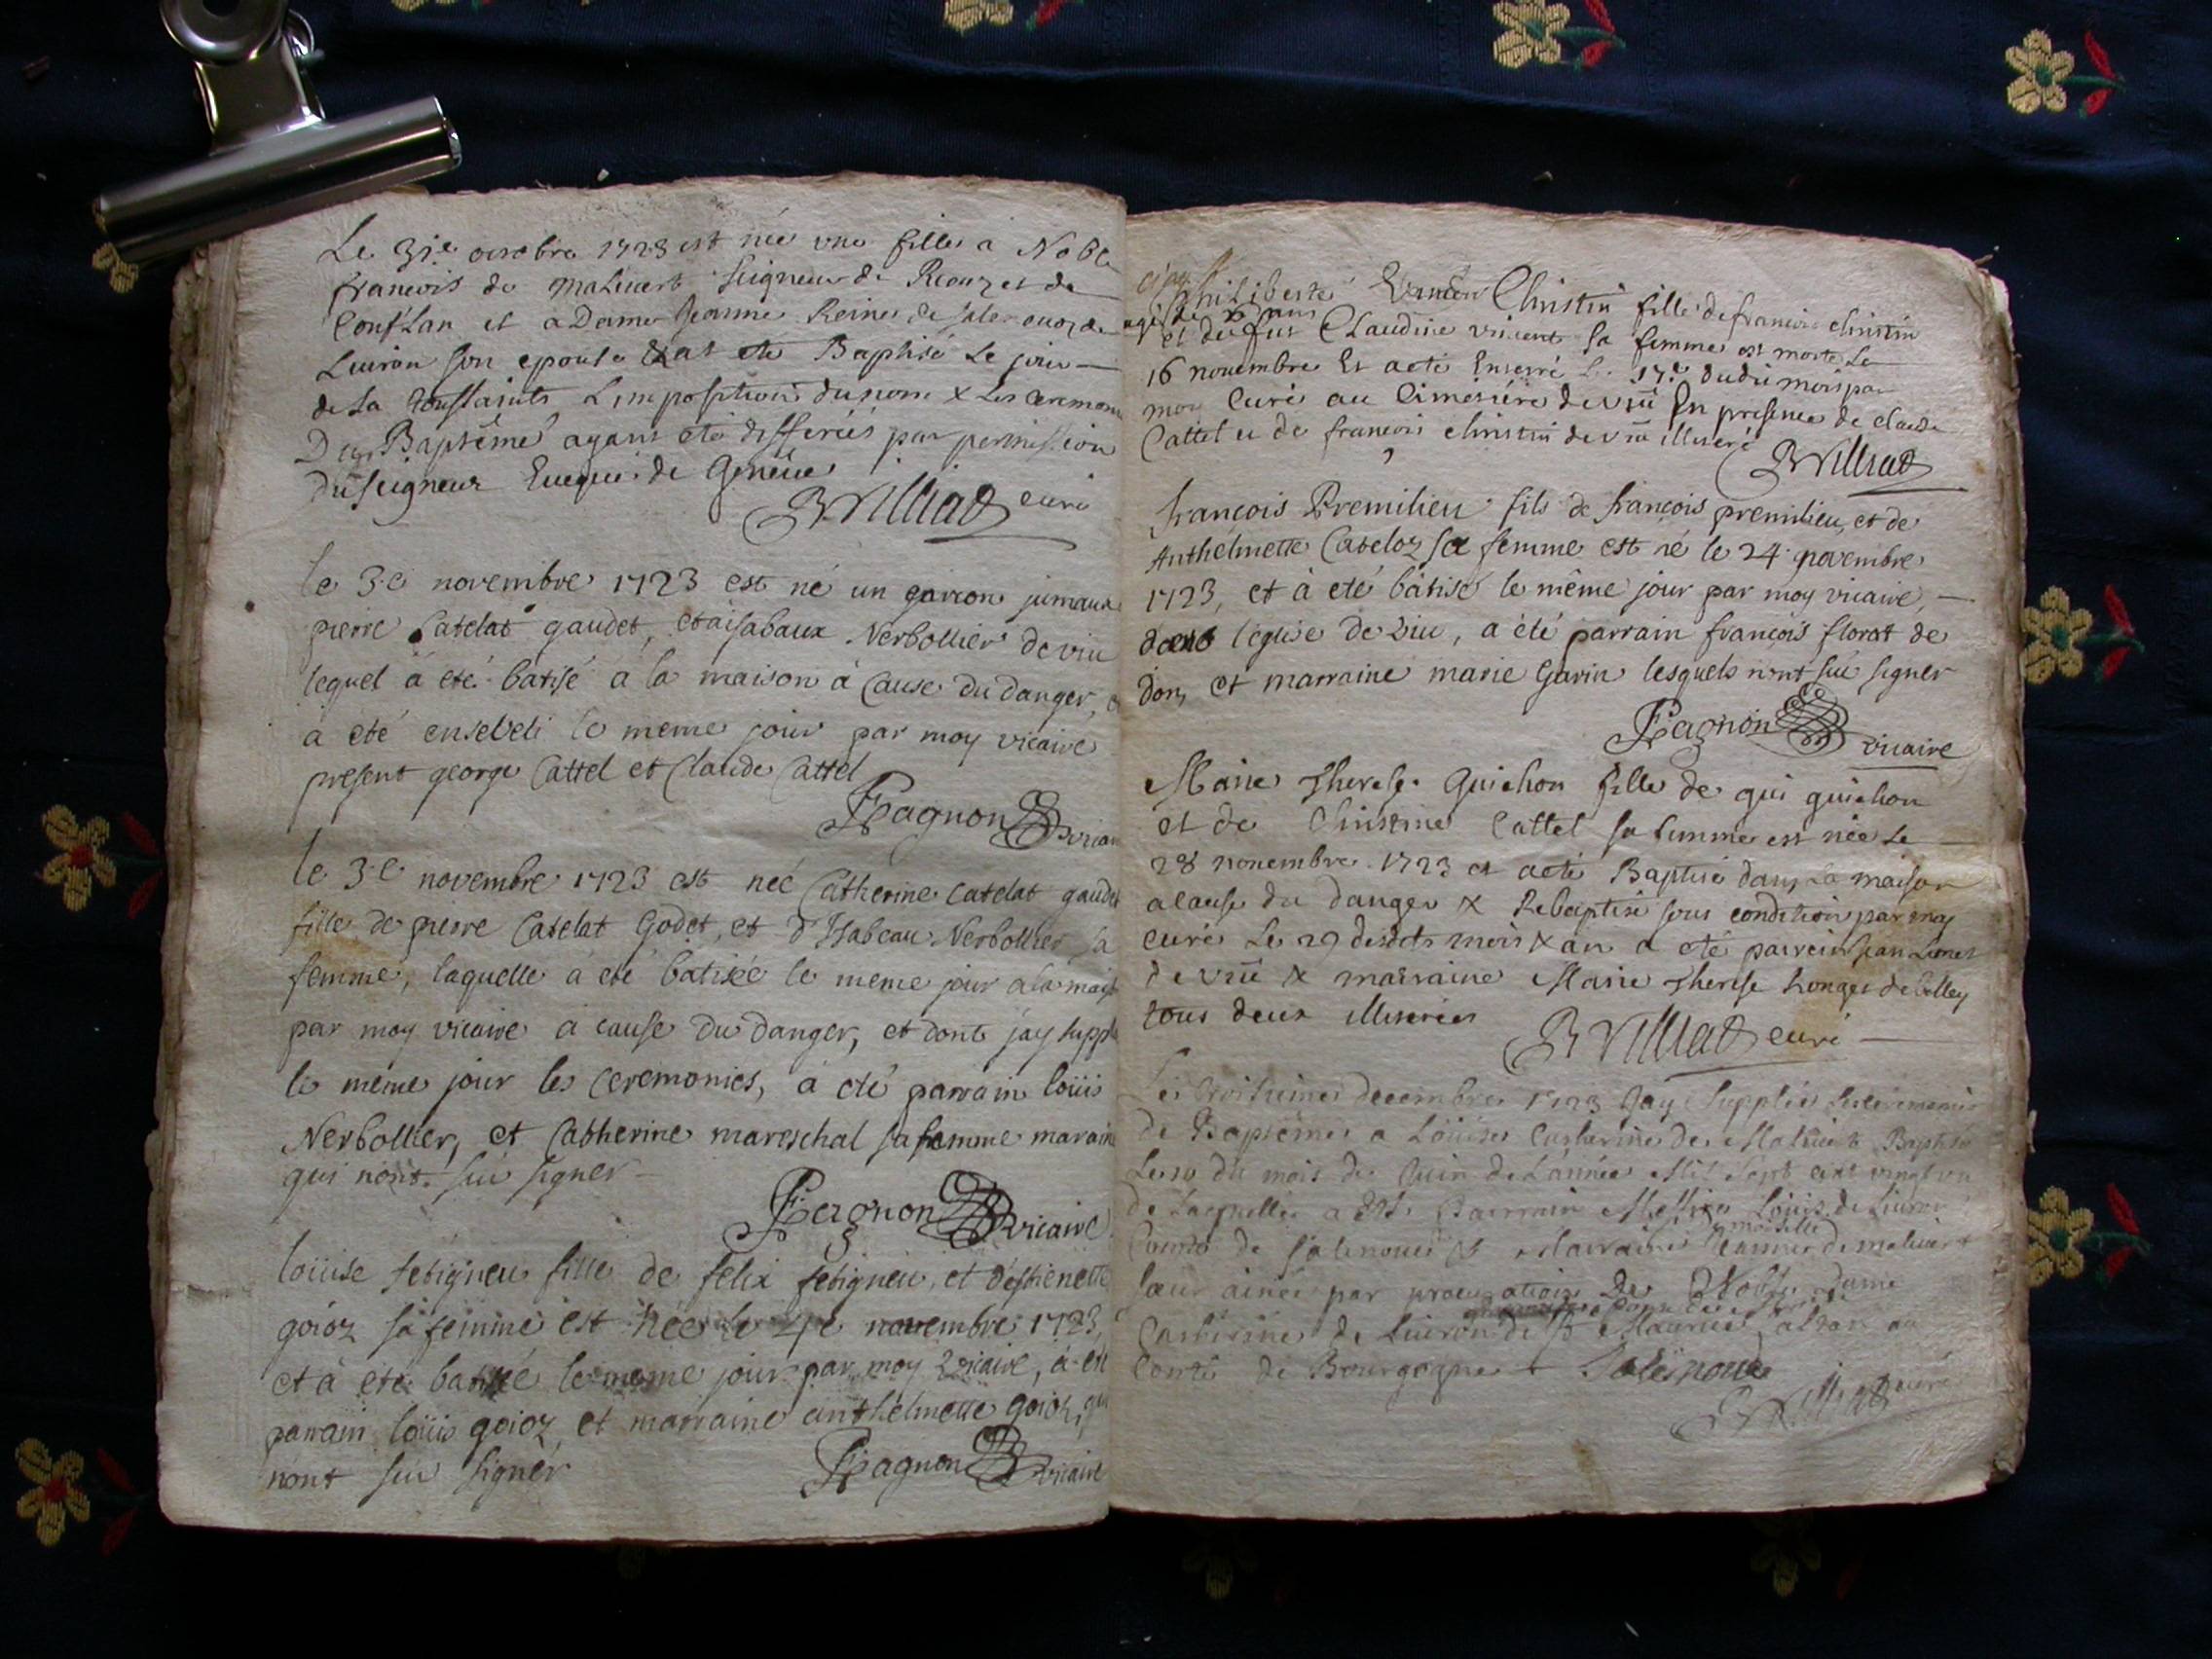 Le 31.e octobre 1723 est née une fille a Noble
francois de Malivert Seigneur de et de
Conflan et a Dame Jeanne Reine de Salenove de
Luiron son epouse & at eté Baptisé Le jour
de La toussaints L'imposition du nom & Les ceremonie
Du Baptême ayant eté differées par permission
du Seigneur Eveque de Genève
BVilliat curé
le 3.e novembre 1723 est né un garcon jumeaux
pierre Catelat gaudet, et a isabaux Nerbollier de viu
lequel à eté batisé à la maison à Cause du danger, e
à eté enseveli le meme jour par moy vicaire
present george Cattel et Claude Cattel
Fagnon vicair
le 3.e novembre 1723 est neé Catherine catelat gaudet
fille de pierre Catelat Godet, et d'Isabeau Nerbollier sa
femme, laquelle à eté batisée le meme jour a la mais
par moy vicaire à cause du danger, et dont j'ay supple
le même jour les Ceremonies, à eté parrain loüis
Nerbollier, et Catherine mareschal sa femme maraine
qui nont sçû signer
Fagnon vicaire
loüise fetigneu fille de felix fetigneu, et d'estienette
goioz sa femme est née le 4.e novembre 1723,
et à eté batisée le meme jour par moy vicaire, à eté
parrain loüis goioz, et marraine anthelmette goioz, qui
nont sçû signer
Fagnon vicaire
agé de ans
philiberte Christin fille de francois christin
et de fut Claudine vincent sa femme est morte Le
16 novembre Et a eté Enterré Le 17.e dudit mois par
moy Curé au Cimetiére de Viü En presence de claude
Cattel et de francois christin de viü illiteré
BVilliat
françois Premilieu fils de françois premilieu, et de
Anthelmette Cateloz sa femme est né le 24 novembre
1723, et à eté bâtisé le même jour par moy vicaire,
dans l'église de Viu, a été parrain françois florat de
don, et marraine marie Garin lesquels n'ont sçû signer
Fagnon vicaire
Marie Therese Guichon fille de gui guichon
et de Christine Cattel sa femme est née Le
28 novembre 1723 et a eté Baptisé dans La maison
a cause du danger & Rebaptisé sous condition par moy
curé Le 29 desdits mois & an a eté parrein Jean
de Viü & marraine Marie Therese de belley
tous deux illiterés
BVilliat curé
Le troisieme decembre 1723 Jay Supplée Les ceremonies
de Baptême a Loüise Catherine de Malivert Baptisé
Le du mois de Juin de Lannée Mil Sept cent vingt un
de Laquelle a eté Parrain Messire Loüis de Luiron
Comte de Salenoue & Marraine demoiselle Jeanne de malivert
sœur ainée par procuration de Noble dame
Catherine de Luiron de St Maurice au
Comté de Bourgogne Salenoue
BVilliat curé